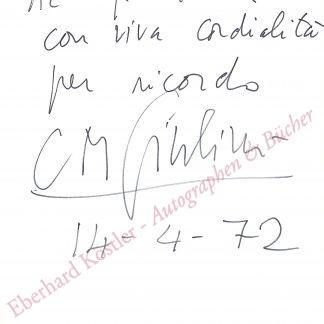 con viva cordialità
per ricordo
CM Giulini
14-4-72
Eberhard Köstler - Autographen & Bücher